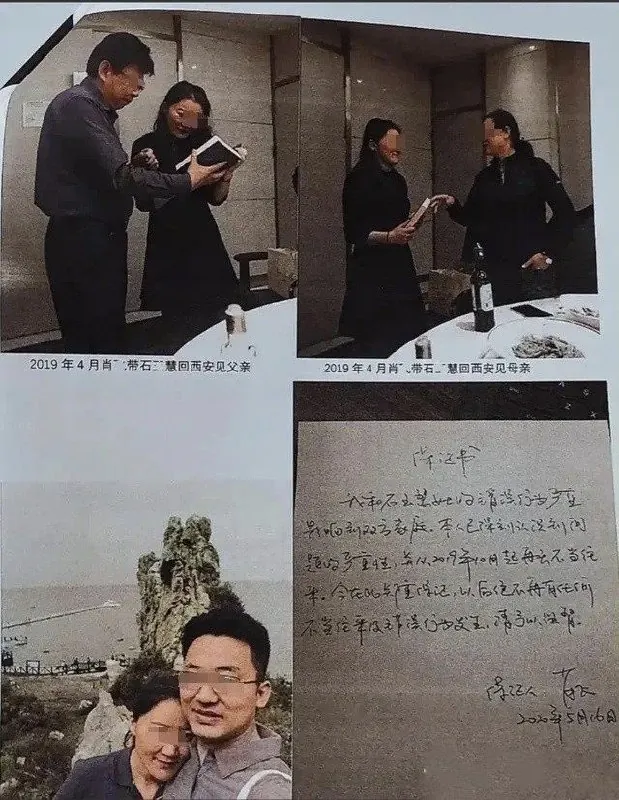 2019 年 4 月肖 带石 慧回西安见父亲
2019 年 4 月肖 带石 慧回西安见母亲
保证书
我和石 慧女士的错误行为严重
影响到双方家庭。本人已深刻认识到问
题的严重性，并从2019年10月起再无不当往
来。今在此郑重保证，以后绝不再有任何
不当往来及错误行为发生，请予以监督。
保证人
2020年5月16日